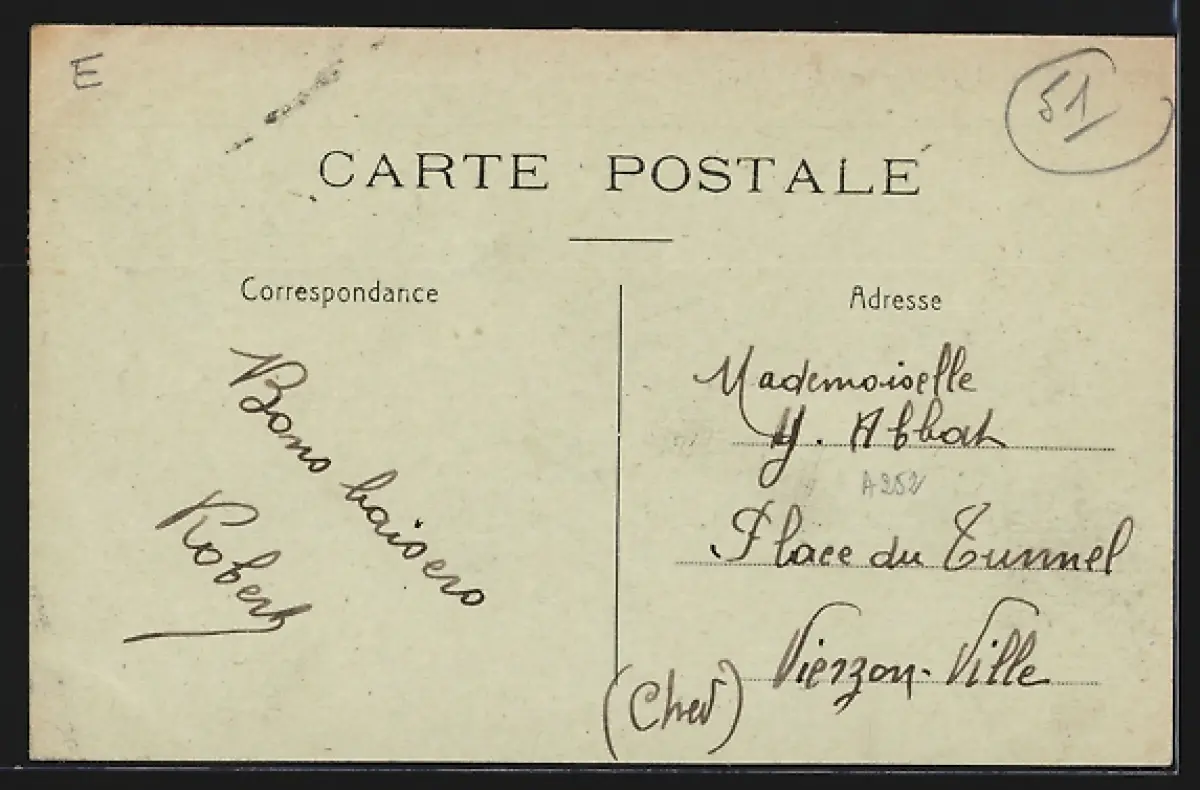 E
51
CARTE POSTALE
Correspondance
Bons baisers
Robert
Adresse
Mademoiselle
Y. Abbat
A252
Place du Tunnel
Vierzon-Ville
(Cher)